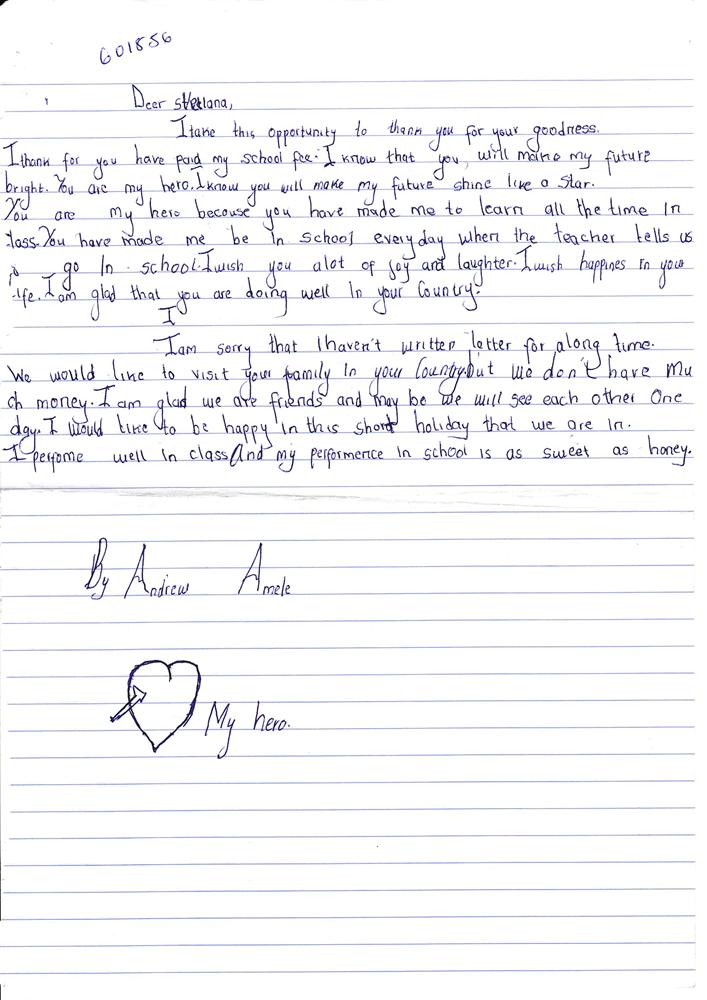 601856
Deer Stvetlana,
I take this opportunity to thank you for your goodness.
I thank for you have paid my school fee. I know that you, will make my future
bright. You are my hero. I know you will make my future shine like a star.
You are my hero becouse you have made me to learn all the time In
class. You have made me be In School everyday when the teacher tells us
to go In school. I wish you alot of joy and laughter. I wish happines in your
life. I am glad that you are doing well In your Country.
I
I am sorry that I haven't written letter for along time.
We would like to visit your family In your Country. but we don't have mu
ch money. I am glad we are friends and may be we will see each other One
day. I would like to be happy in this short holiday that we are in.
I peryome well in class And my performence in school is as sweet as honey.
By Andrew Amele
My hero.